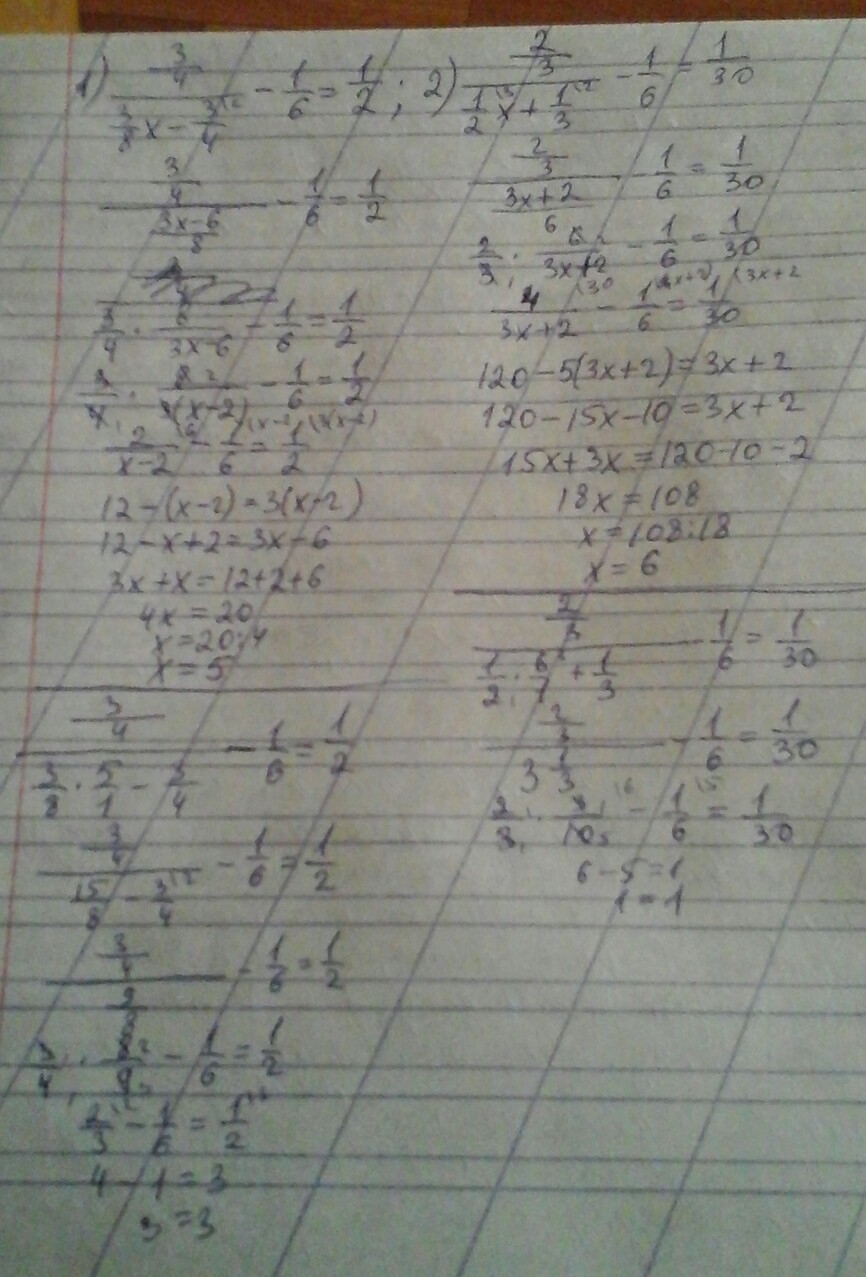 1) (3/4)/(3/8 x − 3/4 ^(2) ) − 1/6 = 1/2 ;
(3/4)/((3x−6)/8) − 1/6 = 1/2
3/4 · 8/(3x−6) − 1/6 = 1/2
3/4 · 8/(3(x−2)) − 1/6 = 1/2
2/(x−2) − 1/6 = 1/2
12−(x−2)=3(x−2)
12−x+2=3x−6
3x+x=12+2+6
4x=20
x=20:4
x=5
(3/4)/(3/8 · 5/1 − 3/4) − 1/6 = 1/2
(3/4)/(15/8 − 3/4 ^(2) ) − 1/6 = 1/2
(3/4)/(9/8) − 1/6 = 1/2
3/4 · 8/9 − 1/6 = 1/2
2/3 − 1/6 = 1/2
4−1=3
3=3
2) (2/3)/(1/2 ^(3) x + 1/3 ^(2) ) − 1/6 = 1/30
(2/3)/((3x+2)/6) − 1/6 = 1/30
2/3 · 6/(3x+2) − 1/6 = 1/30
4/(3x+2) ^(30) − 1/6 ^(5(3x+2)) = 1/30 ^(3x+2)
120−5(3x+2)=3x+2
120−15x−10=3x+2
15x+3x=120−10−2
18x=108
x=108:18
x=6
(2/3)/(1/2 · 6/1 + 1/3) − 1/6 = 1/30
(2/3)/(3 1/3) − 1/6 = 1/30
2/3 · 3/10 − 1/6 = 1/30
6−5=1
1=1